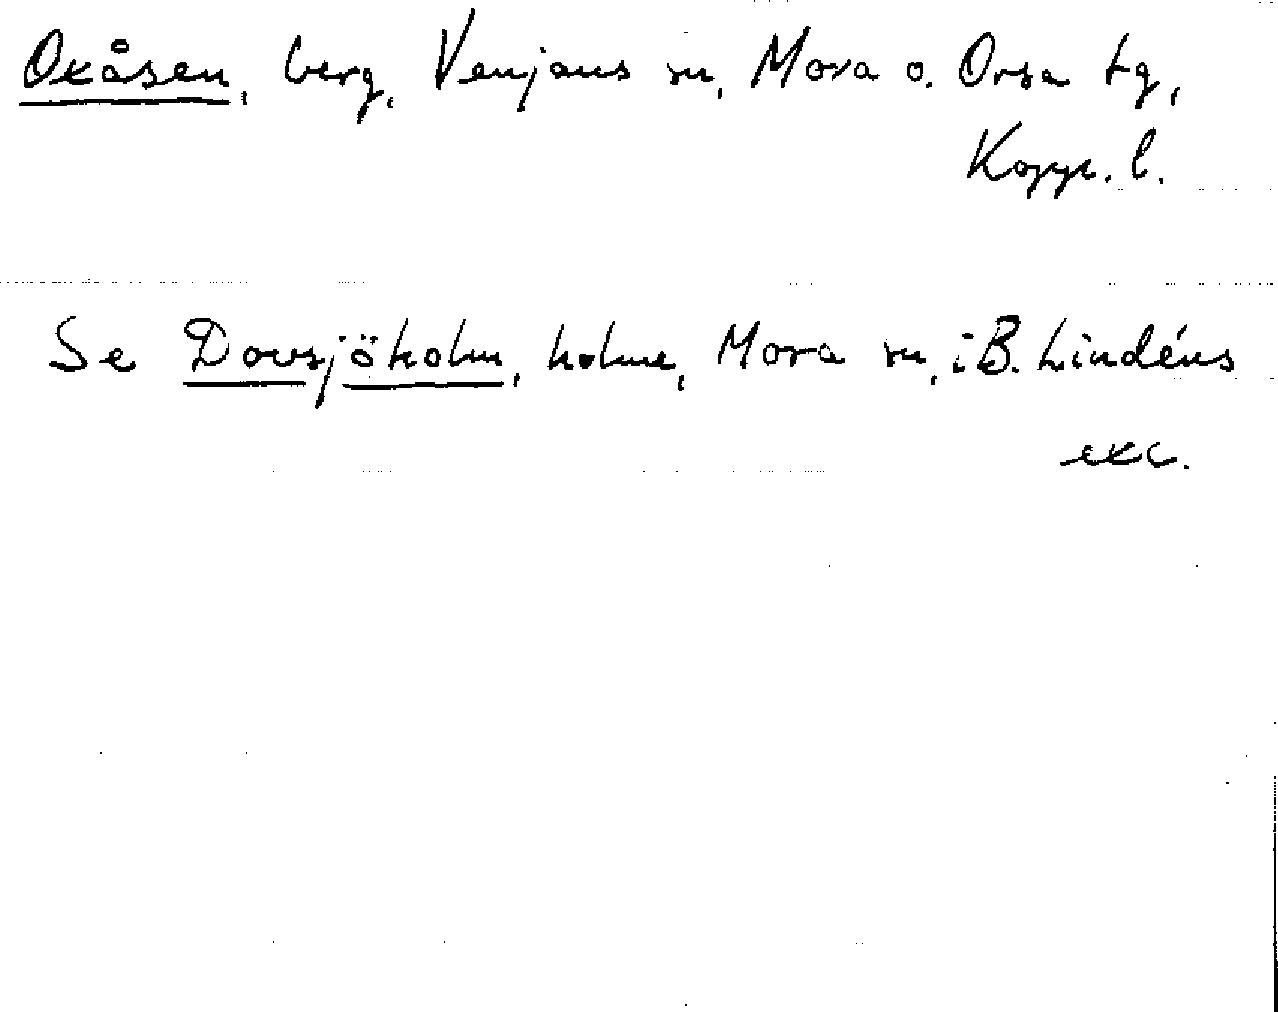 Oxåsen, berg, Venjans sn, Mora o. Orsa tg,
Kopp. l.
Se Dovsjöholm, holme, Mora sn, i B. Lindéns
exc.